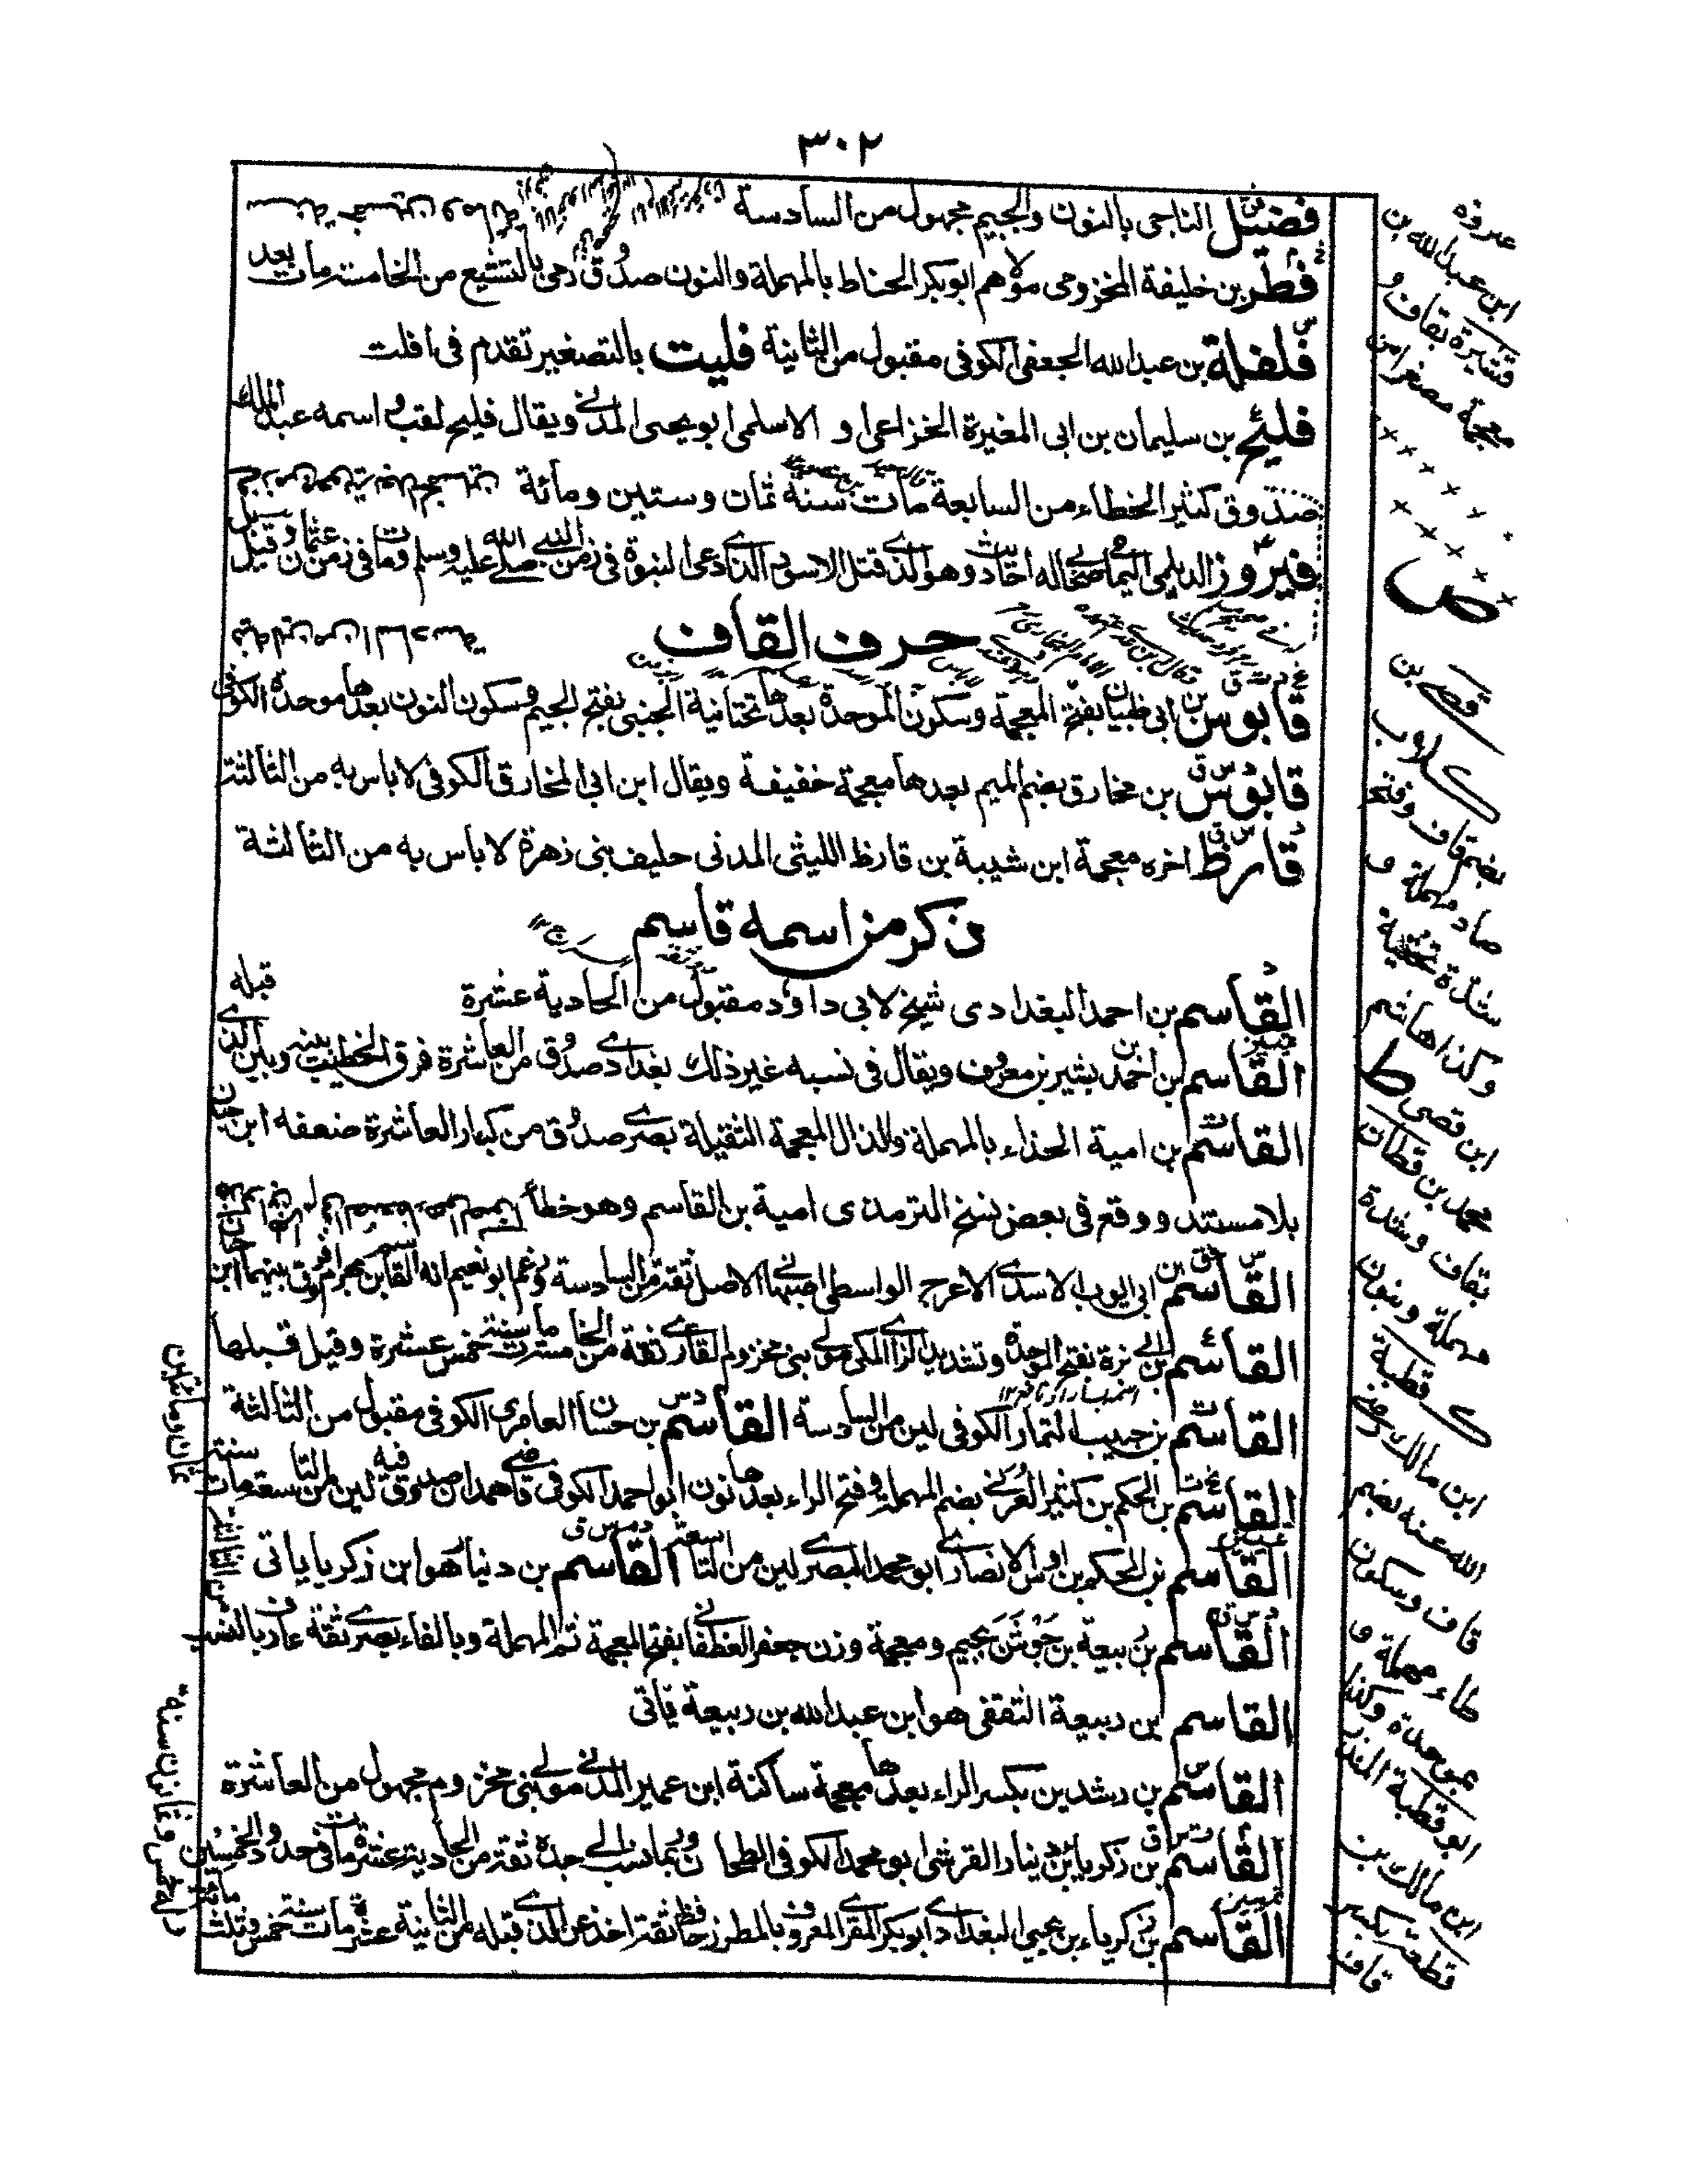 ٣٠٢
فضيل الناجى بالنون والجيم مجهول من السادسة
سنة خمسين ومائة
فطر بن خليفة المخزومى مولاهم ابوبكر الحناط بالمهملة والنون صدوق رمى بالتشيع من الخامسة مات بعد
فلفلة بن عبدالله الجعفى الكوفى مقبول من الثانية فليت بالتصغير تقدم فى افلت
فليح بن سليمان بن ابى المغيرة الخزاعى او الاسلمى ابو يحيى المدنى ويقال فليح لقب واسمه عبد الملك
صدوق كثير الخطاء من السابعة مات سنة ثمان وستين ومائة
فيروز الديلمى اليمانى صحابى له احاديث وهو الذى قتل الاسود الذى ادعى النبوة فى زمن النبى صلى الله عليه وسلم ومات فى زمن عثمان وقيل
حرف القاف
قابوس بن ابى ظبيان بفتح المعجمة وسكون الموحدة بعدها تحتانية الجنبى بفتح الجيم وسكون النون بعدها موحدة الكوفى
قابوس بن مخارق بضم الميم بعدها معجمة خفيفة ويقال ابن ابى المخارق الكوفى لا باس به من الثالثة
قارظ اخره معجمة ابن شيبة بن قارظ الليثى المدنى حليف بنى زهرة لا باس به من الثالثة
ذكر من اسمه قاسم
القاسم بن احمد البغدادى شيخ لابى داود مقبول من الحادية عشرة
قبله
القاسم بن احمد بن بشير بن معروف ويقال فى نسبه غير ذلك بغدادى صدوق من العاشرة فرق الخطيب بينه وبين الذى
القاسم بن امية الحذاء بالمهملة والذال المعجمة الثقيلة بصرى صدوق من كبار العاشرة ضعفه ابن حبان
بلا مستند ووقع فى بعض نسخ الترمذى امية بن القاسم وهو خطأ
القاسم بن ابى ايوب الاسدى الاعرج الواسطى اصبهانى الاصل ثقة من السادسة وزعم ابو نعيم انه القاسم بن بهرام وفرق بينهما ابن حبان
القاسم بن ابى بزة بفتح الموحدة وتشديد الزاى المكى مولى بنى مخزوم القارى ثقة من الخامسة مات سنة خمس عشرة وقيل قبلها
القاسم بن حبيب التمار الكوفى لين من السادسة القاسم بن حسان العامرى الكوفى مقبول من الثالثة
القاسم بن الحكم بن كثير العرنى بضم المهملة وفتح الراء بعدها نون ابو احمد الكوفى قاضى همدان صدوق فيه لين من التاسعة مات سنة
ثمان ومائتين
القاسم بن الحكم بن اوس الانصارى ابو محمد البصرى لين من التاسعة القاسم بن دينار هو ابن زكريا ياتى
القاسم بن ربيعة بن جوشن بجيم ومعجمة وزن جعفر الغطفانى بفتح المعجمة ثم المهملة وبالفاء بصرى ثقة عارف بالنسب
من الثالثة
القاسم بن ربيعة الثقفى هو ابن عبدالله بن ربيعة ياتى
القاسم بن رشدين بكسر الراء بعدها معجمة ساكنة ابن عمير المدنى مولى بنى مخزوم مجهول من العاشرة
القاسم بن زكريا بن دينار القرشى ابو محمد الكوفى الطحان وربما نسب الى جده ثقة من الحادية عشرة مات فى حدود الخمسين
القاسم بن زكرياء بن يحيى البغدادى ابوبكر المقرى المعروف بالمطرز حافظ ثقة اخذ عن الذى قبله من الثانية عشرة مات سنة خمس وثلث مائة
ابن عبدالله بن
قتيرة بقاف و
معجمة مصغرا
ض
قصى بن
كلاب
بضم قاف وفتح
صاد مهملة و
شدة تحتية
وكذا هاشم
ابن قصى ط
محمد بن قطان
بقاف وشدة
مهملة وبنون
قطبة
ابن مالك رضى
الله عنه بضم
قاف وسكون
طاء مهملة و
بموحدة وكذا
ابو قطبة المنذر
ابن مالك بن
قطعة بكسر
قاف